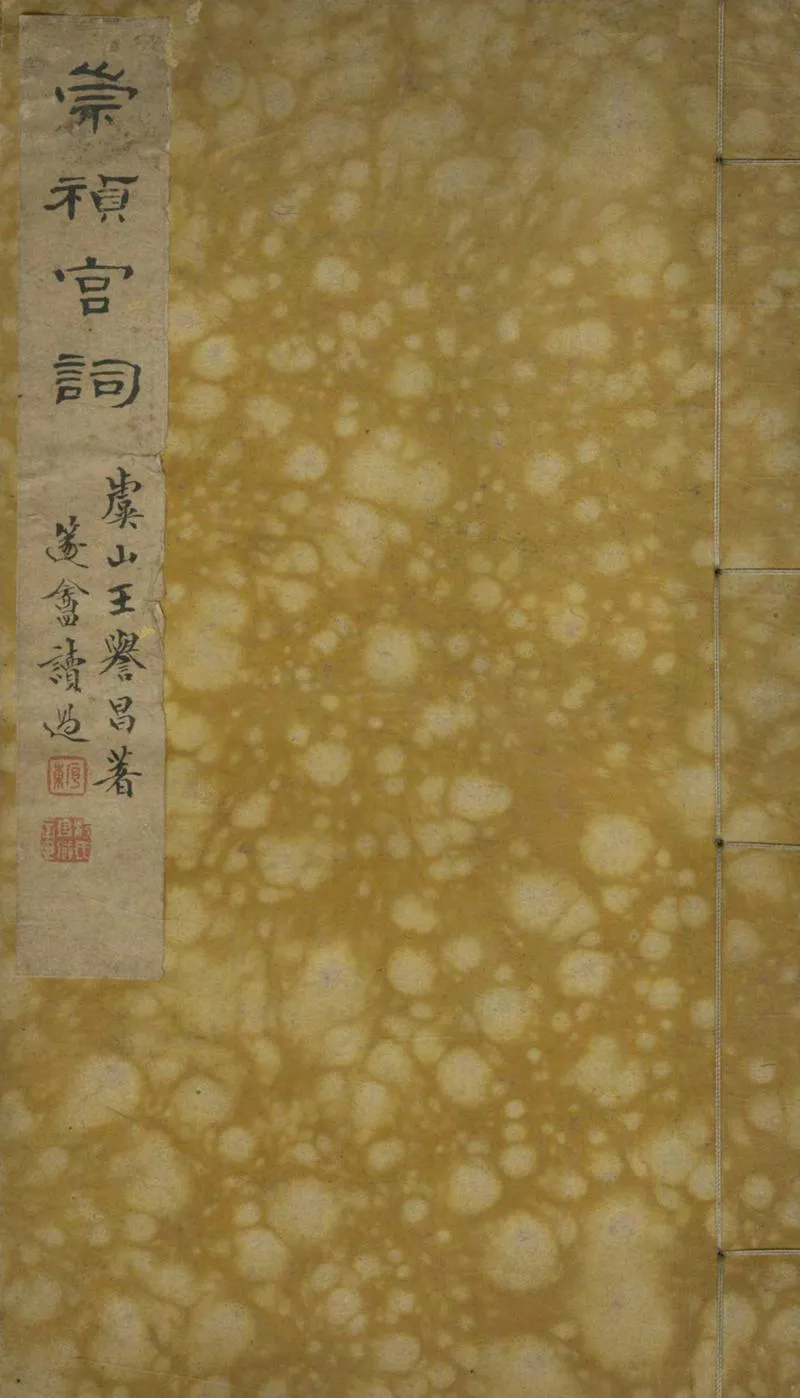 崇禎宮詞
虞山王譽昌著
盦讀過